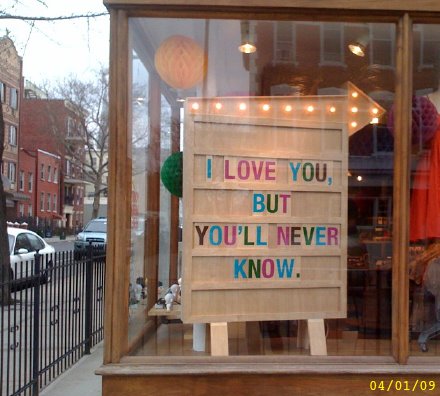 I LOVE YOU,
BUT
YOU'LL NEVER
KNOW.
04/01/09